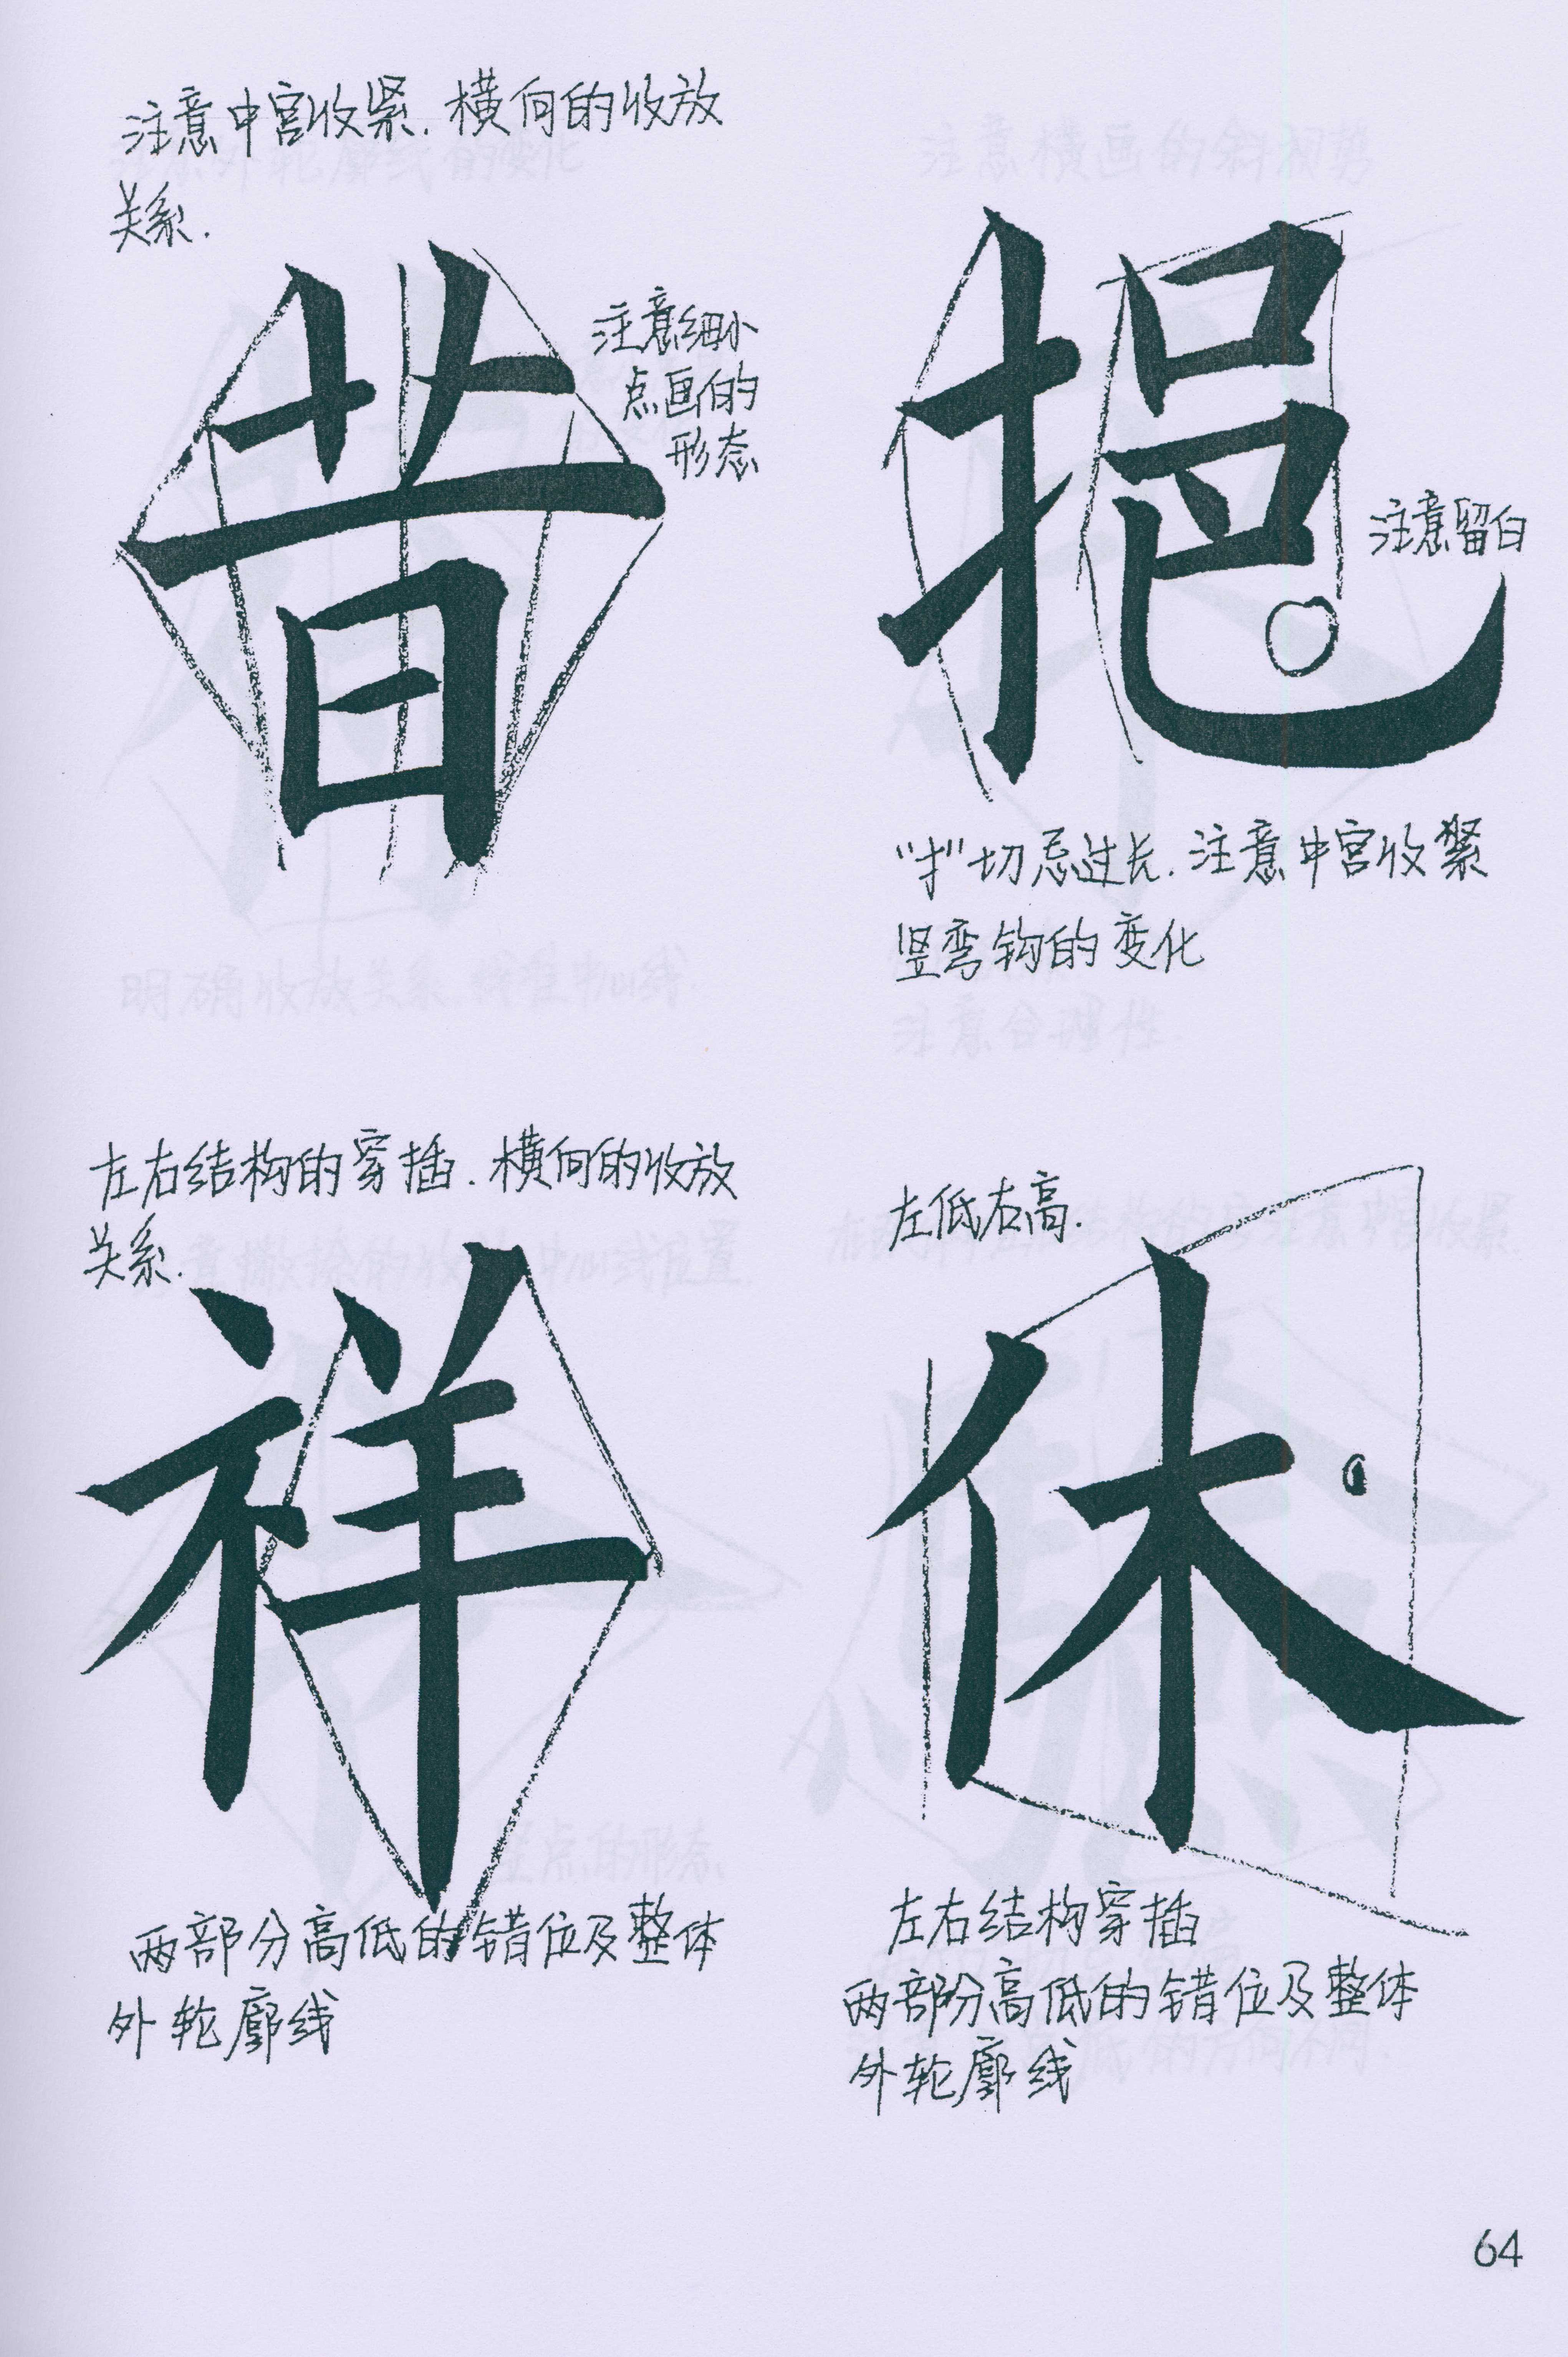 注意中宫收紧.横向的收放
关系.
昔
注意细小
点画的
形态
挹
注意留白
"扌"切忌过长.注意中宫收紧
竖弯钩的变化
左右结构的穿插.横向的收放
关系.
祥
两部分高低的错位及整体
外轮廓线
左低右高.
休
左右结构穿插
两部分高低的错位及整体
外轮廓线
64